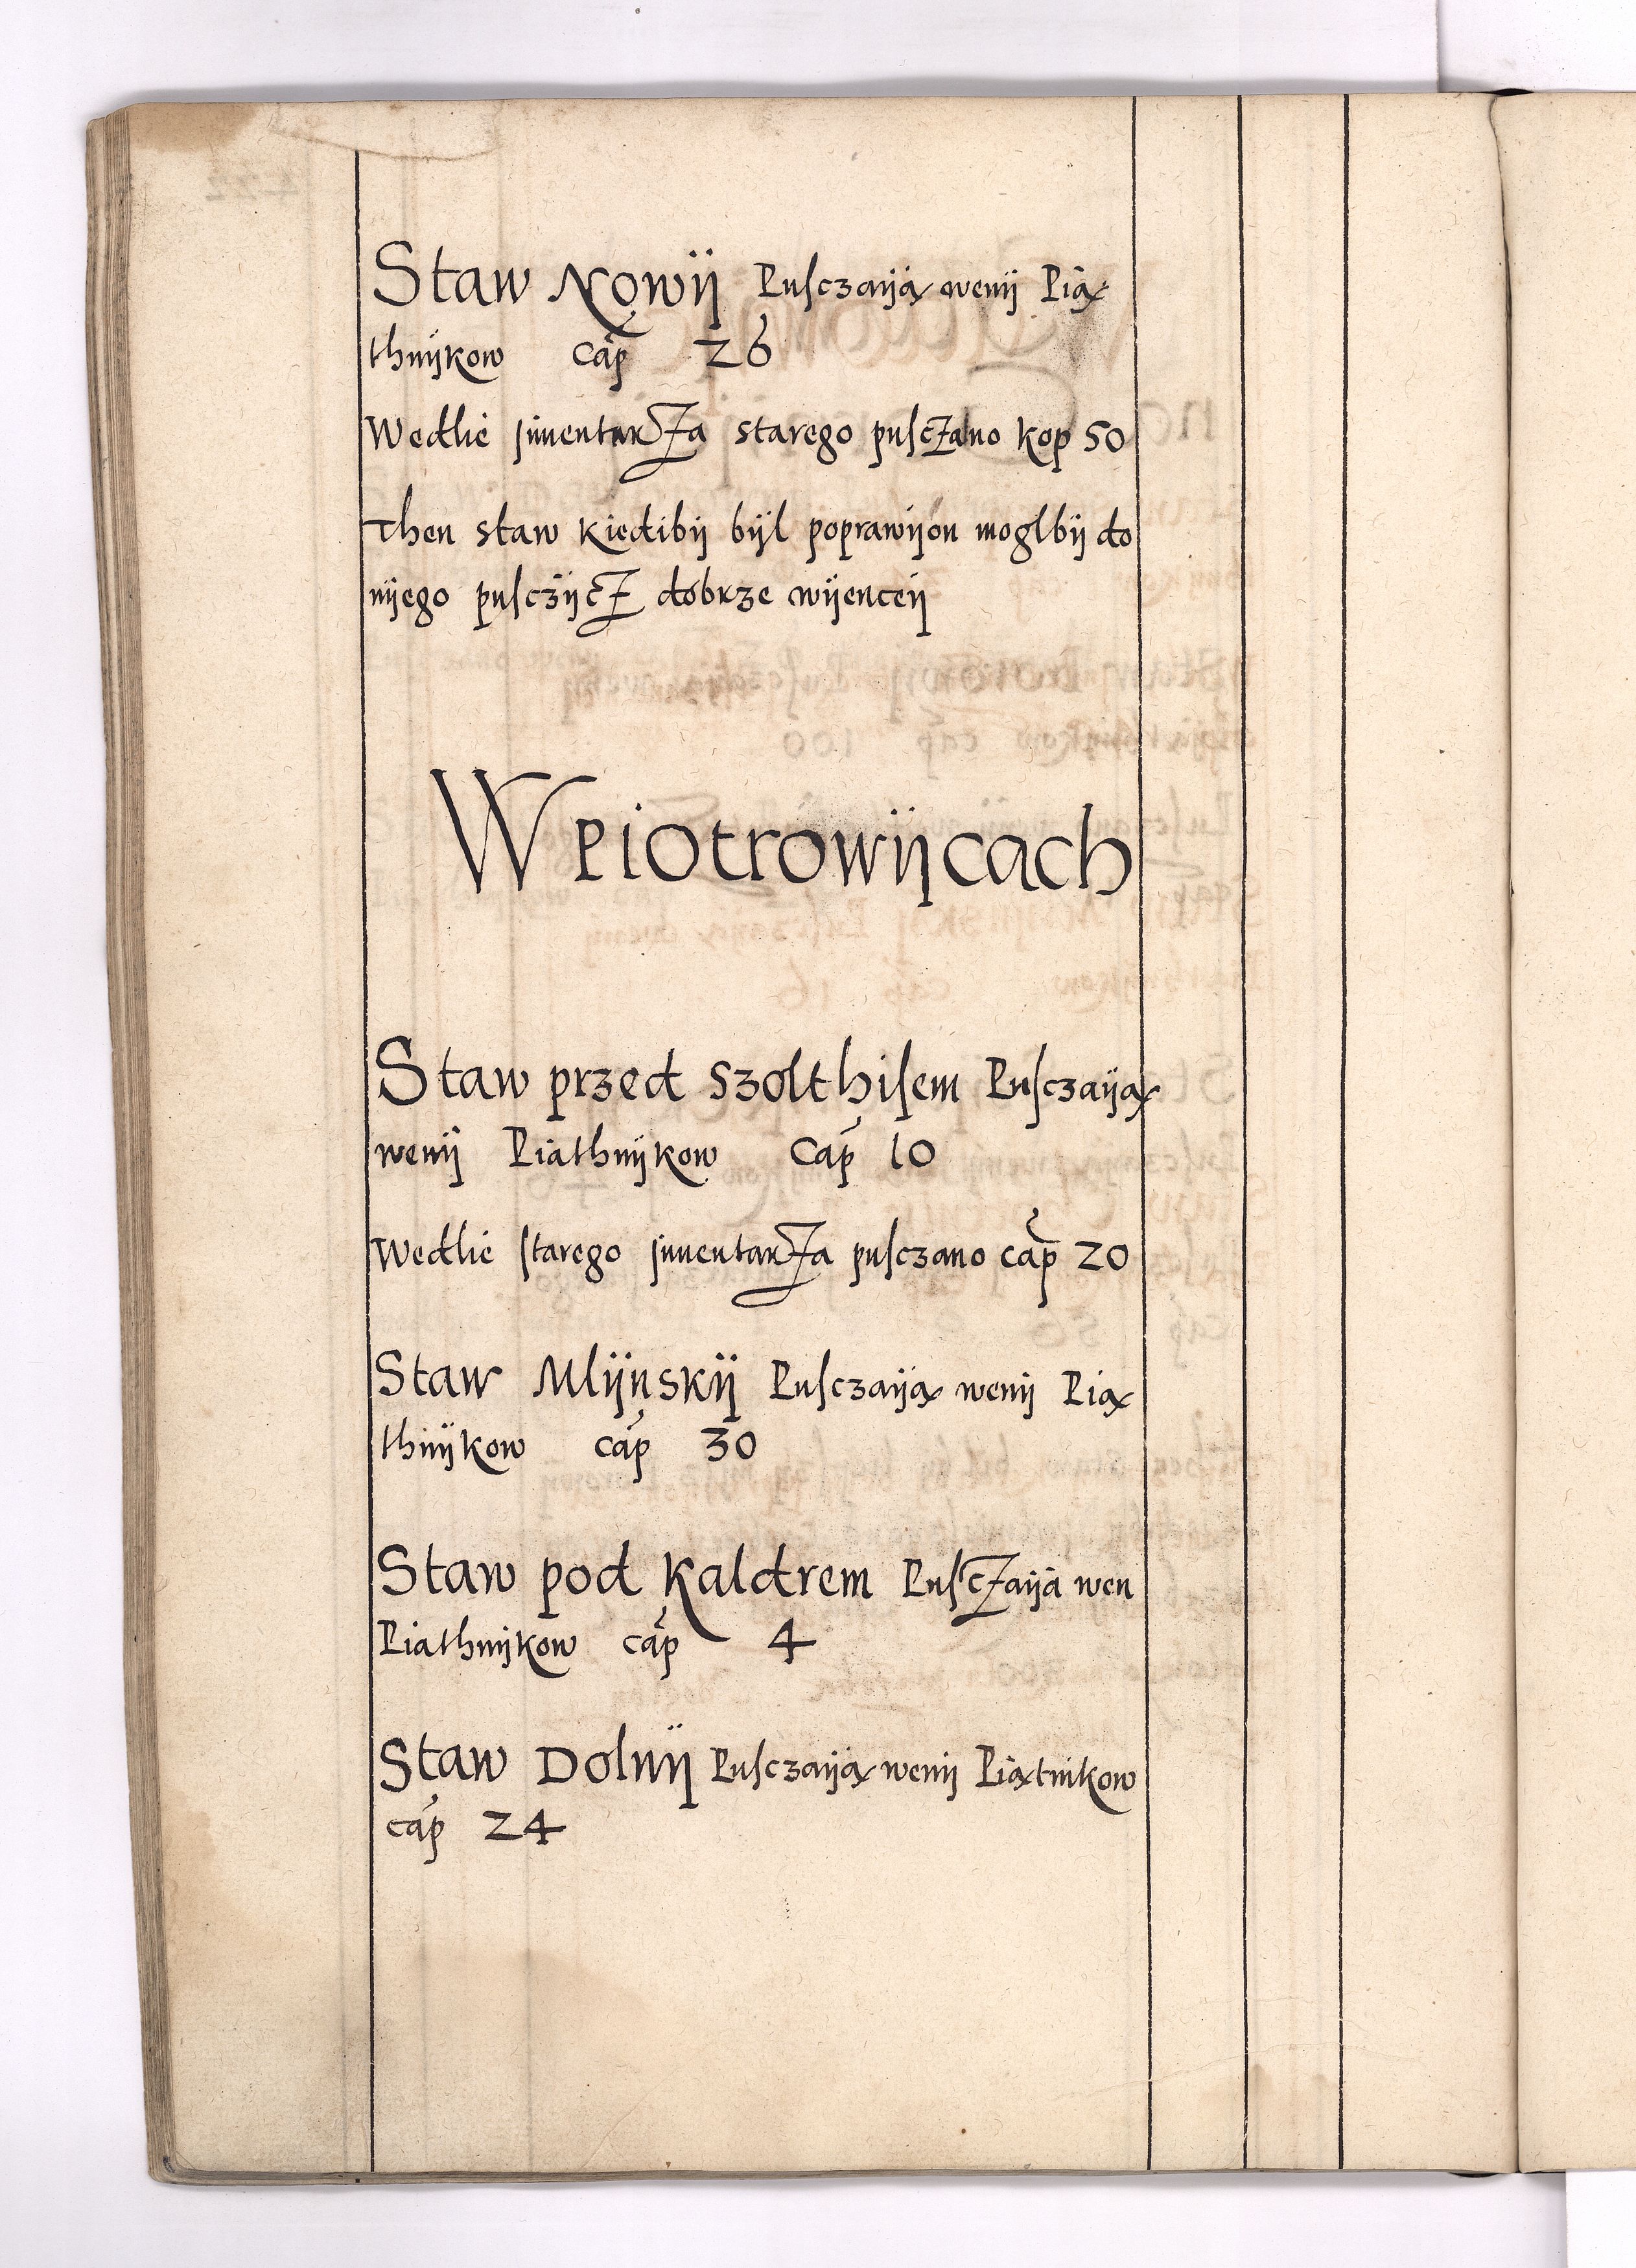 Staw Nowÿ Pusczaÿą wenÿ Pią
thnÿkow cap 26
Wedlie jnuentarza starego pusczano kop 50
Then staw kiedibÿ bÿl poprawÿon moglbÿ do
nÿego pusczÿcz dobrze wÿenceÿ
W Piotrowÿcach
Staw przed szolthisem Pusczaÿą
wenÿ Piathnÿkow Cap 10
Wedlie starego jnuentarza pusczano cap 20
Staw Mlÿnskÿ Pusczaÿą wenÿ Pią
thnÿkow cap 30
Staw pod Kaldrem Pusczaÿa wen
Piathnÿkow cap 4
Staw Dolnÿ Pusczaÿą wenÿ Piątnikow
cap 24